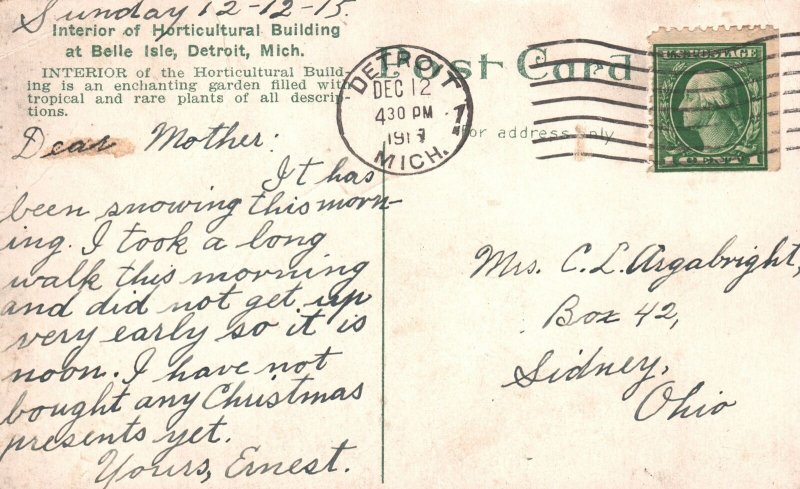 Sunday 12-12-15
Interior of Horticultural Building
at Belle Isle, Detroit, Mich.
INTERIOR of the Horticultural Build-
ing is an enchanting garden filled with
tropical and rare plants of all descrip-
tions.
Dear Mother:
It has
been snowing this morn-
ing. I took a long
walk this morning
and did not get up
very early so it is
noon. I have not
bought any Christmas
presents yet.
Yours, Ernest.
Post Card
For address only
DETROIT
DEC 12
430 PM
MICH.
1
U.S. POSTAGE
1 CENT 1
Mrs. C. L. Argabright,
Box 42,
Sidney,
Ohio